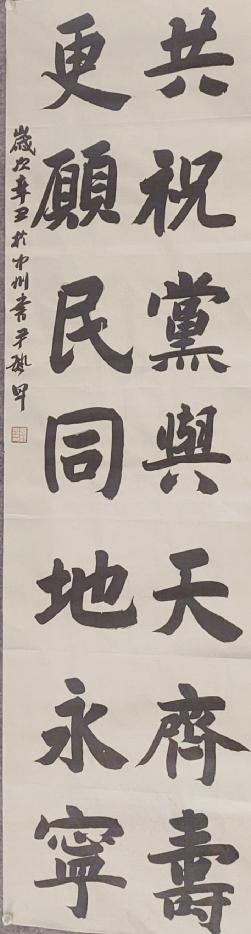 共祝黨與天齊壽
更願民同地永寧
歲次辛丑於中州書尹